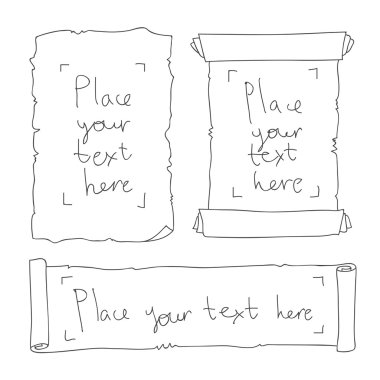 Place
your
text
here
Place
your
text
here
Place your text here